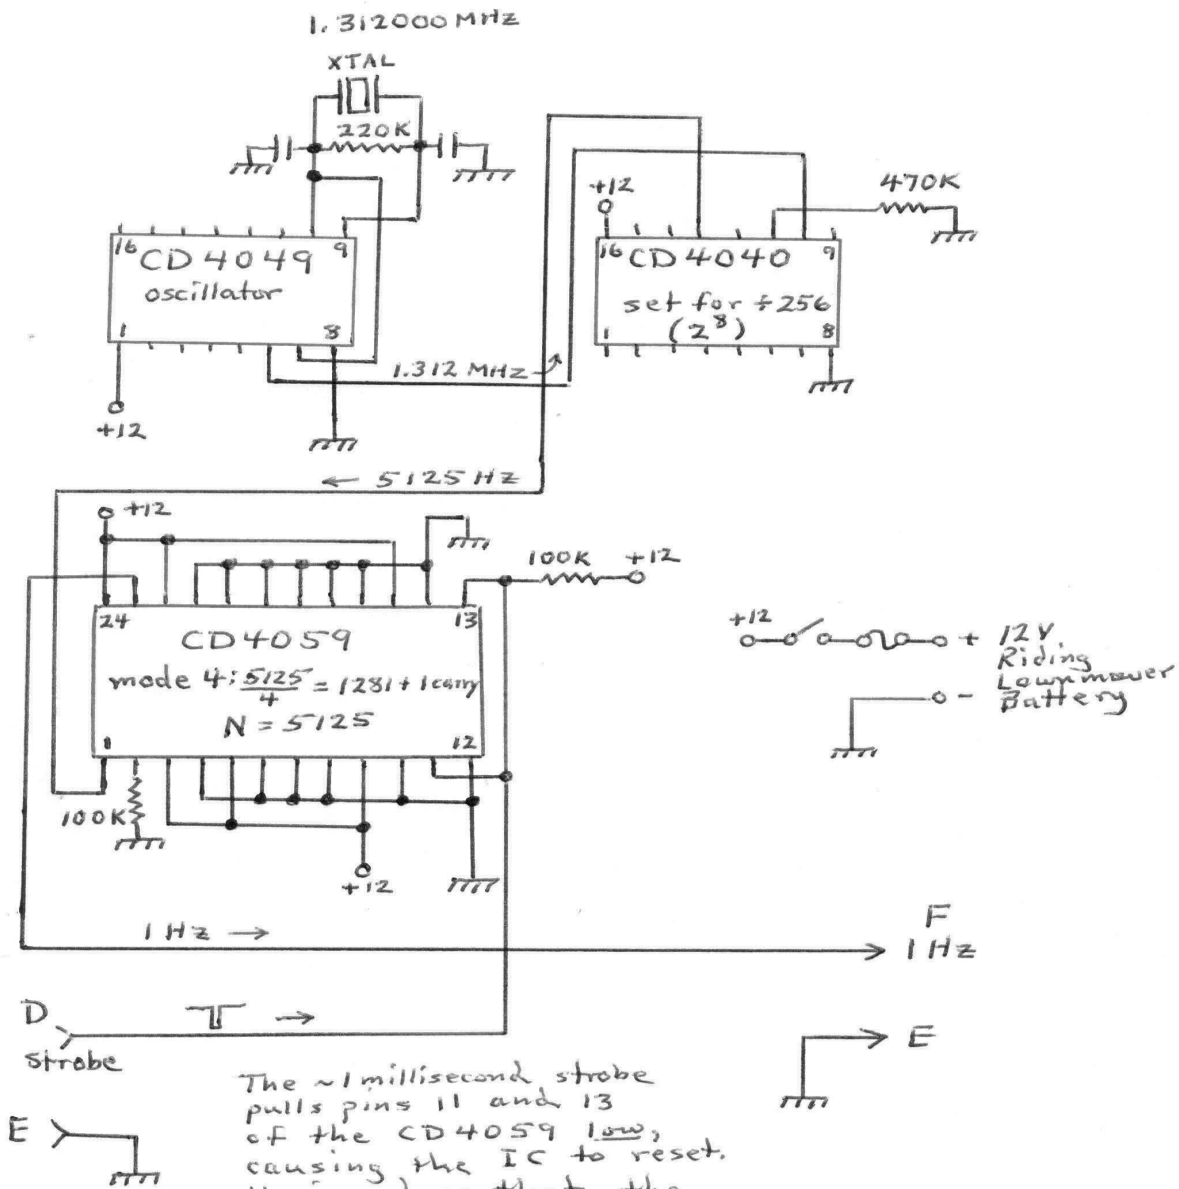 1.312000 MHz
XTAL
220K
16 CD4049 9
oscillator
1 8
+12
1.312 MHz
470K
+12
16 CD4040 9
set for ÷256
(2⁸)
1 8
← 5125 Hz
+12
100K +12
24 13
CD4059
mode 4: 5125/4 = 1281 + 1 carry
N = 5125
1 12
100K
+12
+12
+ 12V
Riding
Lawnmower
- Battery
1 Hz →
F
1 Hz
D
strobe
→
E
E
The ~1 millisecond strobe
pulls pins 11 and 13
of the CD4059 low,
causing the IC to reset.